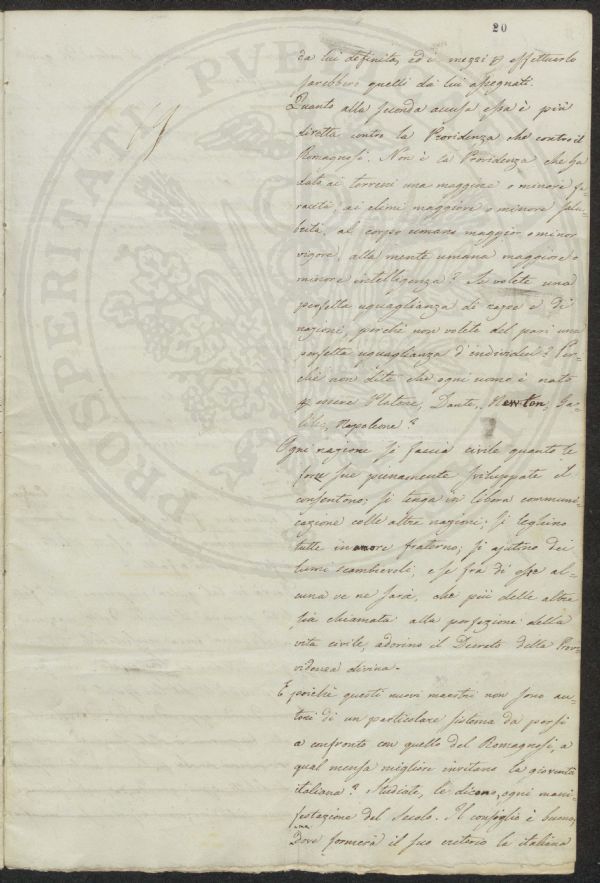 20
da lui definita, ed i mezzi p effettuarlo
sarebbero quelli da lui assegnati.
Quanto alla seconda accusa essa è più
diretta contro la Providenza che contro il
Romagnosi. Non è la Providenza che ha
dato ai terreni una maggiore o minore fe-
racità, ai climi maggiore o minore salu-
brità, al corpo umano maggior o minor
vigore, alla mente umana maggiore o
minore intelligenza? Se volete una
perfetta uguaglianza di razze e di
nazioni, perchè non volete del pari una
perfetta uguaglianza d'individui? Per-
chè non dite che ogni uomo è nato
p essere Platone, Dante, Newton, Ga-
lileo, Napoleone?
Ogni nazione si faccia civile quanto le
forze sue pienamente sviluppate il
consentono; si tenga in libera communi-
cazione colle altre nazioni; si leghino
tutte in amore fraterno; si ajutino dei
lumi scambievoli, e se fra di esse al-
cuna ve ne sarà, che più delle altre
sia chiamata alla perfezione della
vita civile, adorino il Decreto della Prov-
videnza divina.
E poichè questi nuovi maestri non sono au-
tori di un particolare sistema da porsi
a confronto con quello del Romagnosi, a
qual mensa migliore invitano la gioventù
italiana? Studiate, le dicono, ogni mani-
festazione del Secolo. Il consiglio è buono,
ma
Dove formerà il suo criterio la italiana